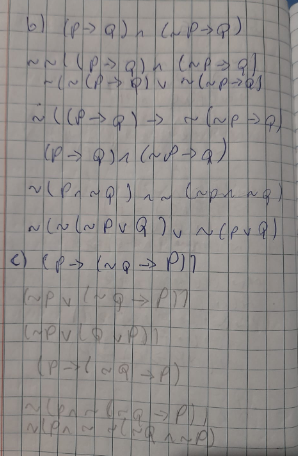 b) (P→Q)∧(~P→Q)
~~((P→Q)∧(~P→Q)
~(~(P→Q)∨~(~P→Q)
~((P→Q)→~(~P→Q)
(P→Q)∧(~P→Q)
~(P∧~Q)∧~(~P∧~Q)
~(~(~P∨Q)∨~(P∨Q)
c) (P→(~Q→P))
(~P∨(~Q→P))
(~P∨(Q∨P))
(P→(~Q→P)
~(P∧~(~Q→P)
~(P∧~~(~Q∧~P)